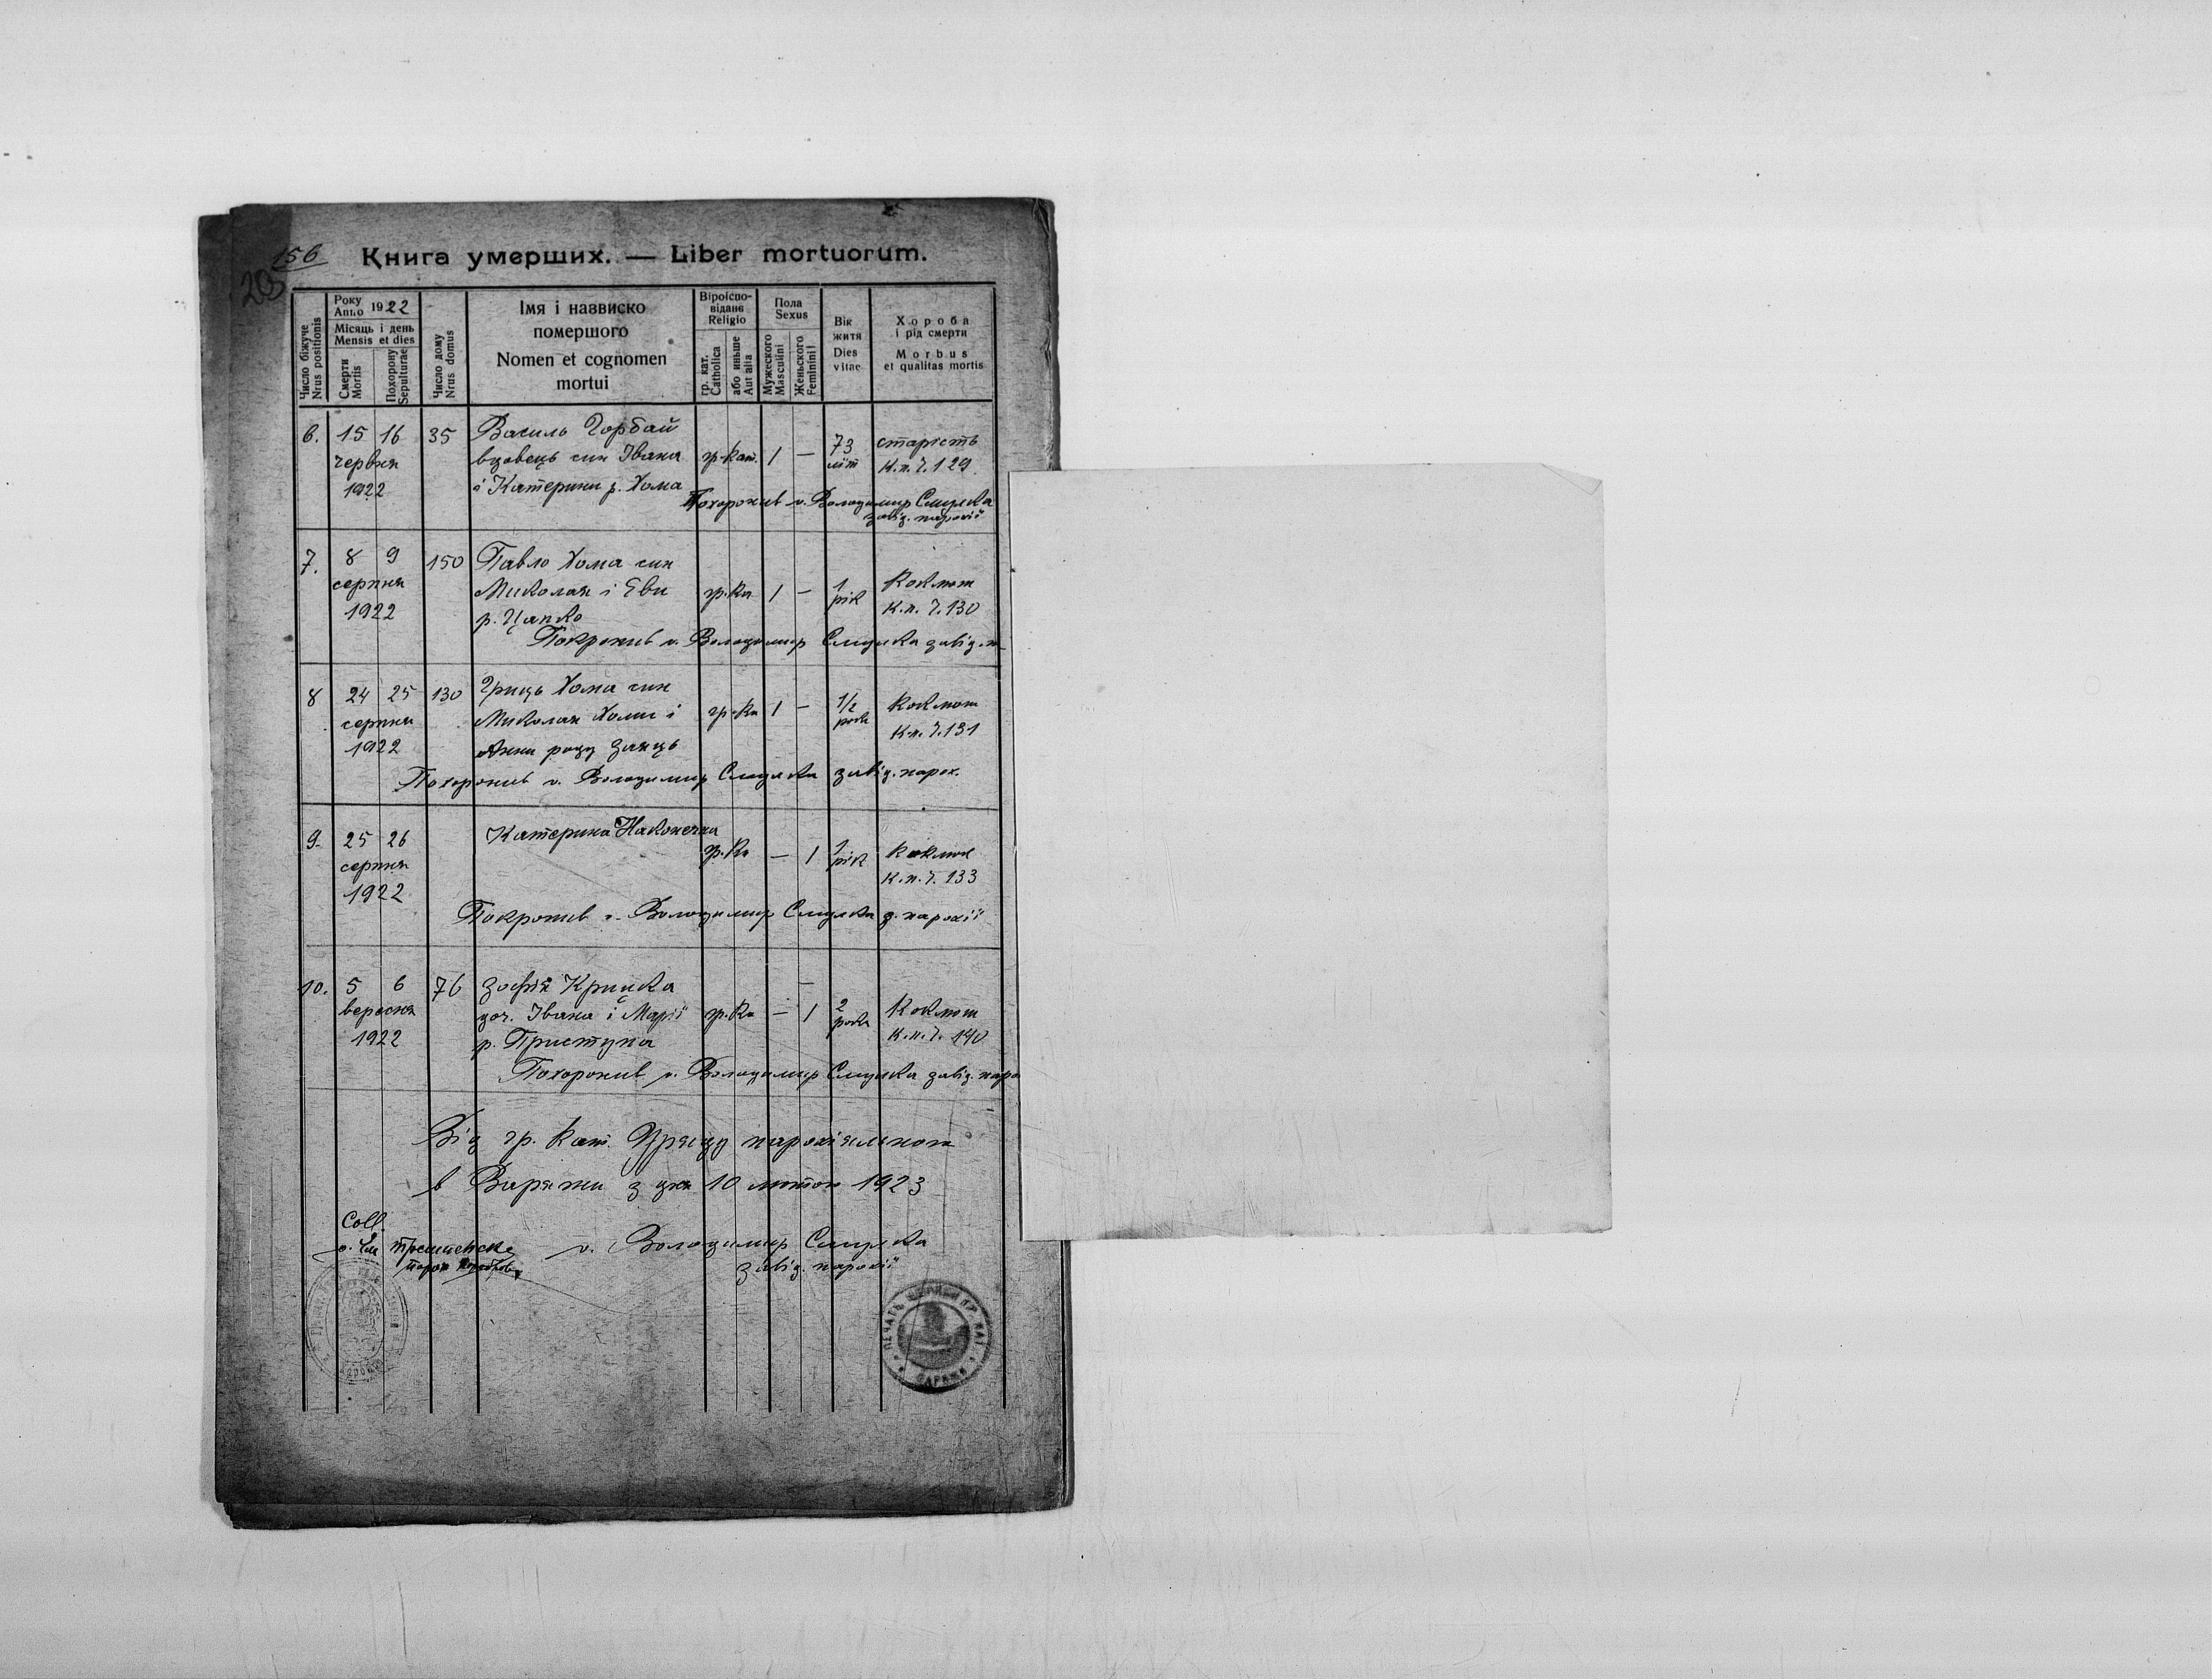 156
203
Книга умерших. — Liber mortuorum.
Число біжуче
Nrus positionis
Року
Anno 1922
Місяць і день
Mensis et dies
Смерти
Mortis
Похорону
Sepulturae
Число дому
Nrus domus
Імя і назвиско
помершого
Nomen et cognomen
mortui
Віроіспо-
відане
Religio
гр. кат.
Catholica
або иньше
Aut alia
Пола
Sexus
Мужеского
Masculini
Женьского
Feminini
Вік
житя
Dies
vitae
Хороба
і рід смерти
Morbus
et qualitas mortis
6. 15 16 35 Василь Горбай
червня вдовець син Івана гр-кат. 1 — 73 літ старість
1922 і Катерини р. Хома к.п.ч.129
Похоронив о. Володимир Смулка
завід. парохії
7. 8 9 150 Павло Хома син
серпня Миколая і Еви гр.ка 1 — 1 рік коклюш
1922 р. Цапко к.п.ч.130
Покронив о. Володимир Смулка завід. п
8 24 25 130 Гриць Хома син
серпня Миколая Хоми і гр-ка 1 — 1/2 рока коклюш
1922 Анни роду Заяць к.п.ч.131
Похоронив о. Володимир Смулка завід. парох.
9. 25 26 Катерина Наконечна
серпня гр.ка — 1 1 рік коклюш
1922 к.п.ч.133
Покронив о. Володимир Смулка з. парохії
10. 5 6 76 Зофія Крицка
вересня доч. Івана і Марії гр.ка — 1 2 рока коклюш
1922 р. Приступа к.п.ч.140
Похоронив о. Володимир Смулка завід. паро
Від гр. кат. Уряду парохіяльного
в Варяжи з дня 10 лютого 1923
Coll.
о. Володимир Смулка
завід. парохії
ПЕЧАТЬ ЦЕРКВИ ГР. КАТ.
ВАРЯЖИ